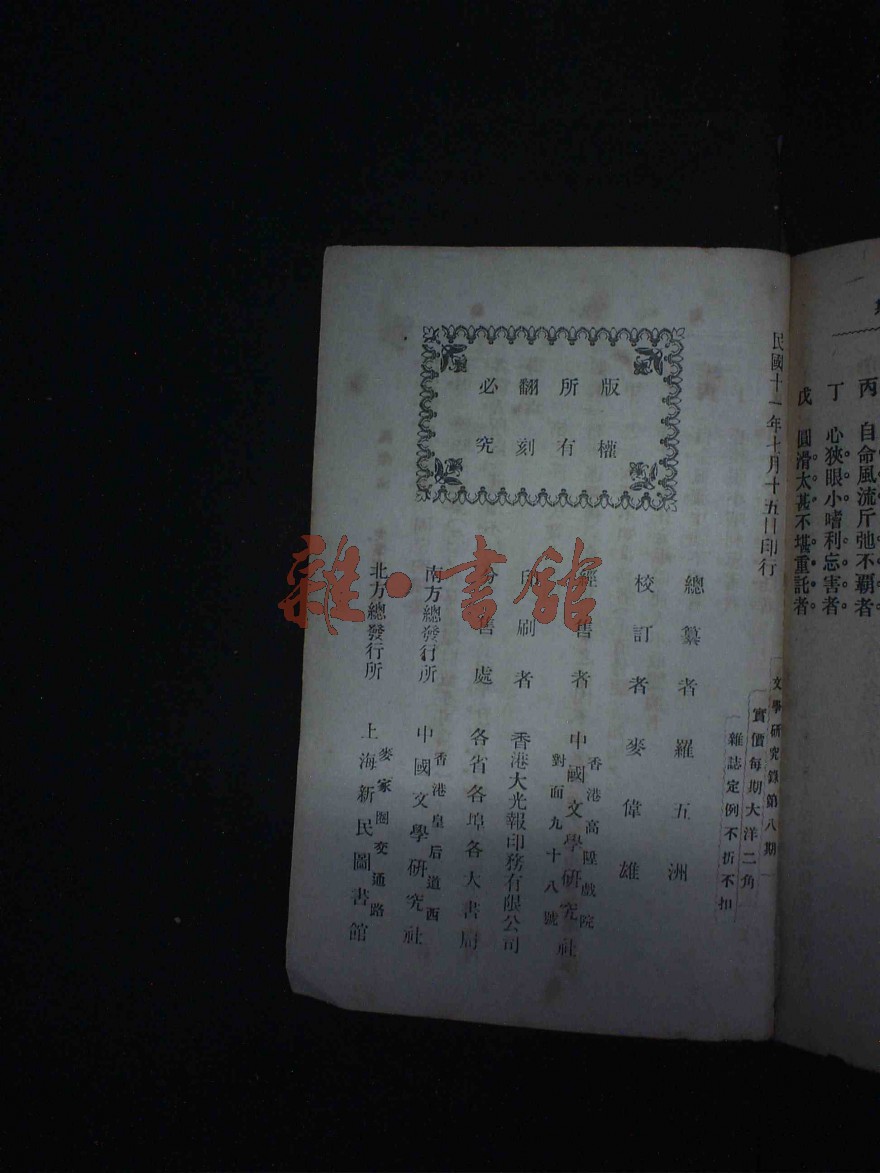 丙　自命風流斤弛不覇者
丁　心狹眼小嗜利忘害者
戊　圓滑太甚不堪重託者
民國十一年七月十五日印行
文學研究錄第八期
實價每期大洋二角
雜誌定例不折不扣
版權
所有
翻刻
必究
總纂者羅五洲
校訂者麥偉雄
經售者 香港高陞戲院對面九十八號 中國文學研究社
印刷者 香港大光報印務有限公司
分售處 各省各埠各大書局
南方總發行所 香港皇后道西 中國文學研究社
北方總發行所 麥家圈交通路 上海新民圖書館
雜·書館